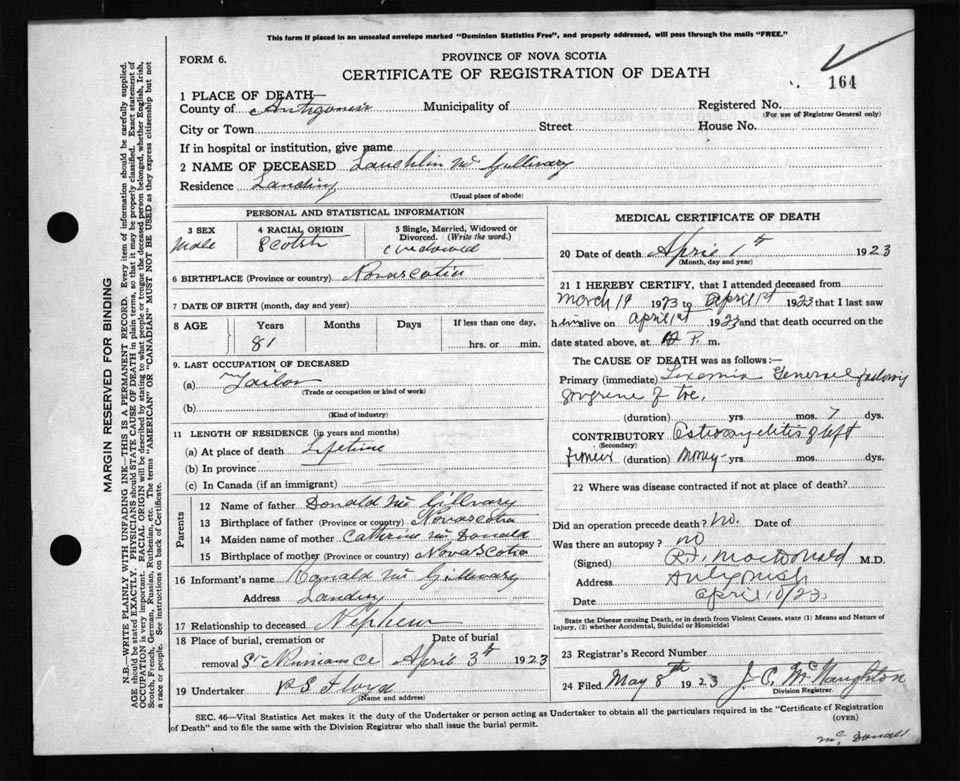 This form if placed in an unsealed envelope marked "Dominion Statistics Free", and properly addressed, will pass through the mails "FREE."
FORM 6.
PROVINCE OF NOVA SCOTIA
CERTIFICATE OF REGISTRATION OF DEATH
164
1 PLACE OF DEATH—
County of Antigonish Municipality of Registered No.
(For use of Registrar General only)
City or Town Street House No.
If in hospital or institution, give name
2 NAME OF DECEASED Lauchlin Mc Gillivary
Residence Landing
(Usual place of abode)
MARGIN RESERVED FOR BINDING
N.B.—WRITE PLAINLY WITH UNFADING INK—THIS IS A PERMANENT RECORD. Every item of information should be carefully supplied.
AGE should be stated EXACTLY. PHYSICIANS should STATE CAUSE OF DEATH in plain terms, so that it may be properly classified. Exact statement of
OCCUPATION is very important. RACIAL ORIGIN will be described by stating to what people or tongue the deceased person belonged, whether English, Irish,
Scotch, French, German, Russian, Ruthenian, etc. The terms "AMERICAN" OR "CANADIAN" MUST NOT BE USED as they express citizenship but not
a race or people. See instructions on back of Certificate.
PERSONAL AND STATISTICAL INFORMATION
3 SEX 4 RACIAL ORIGIN 5 Single, Married, Widowed or
Divorced. (Write the word.)
Male Scotch Widowed
6 BIRTHPLACE (Province or country) Novascotia
7 DATE OF BIRTH (month, day and year)
8 AGE Years Months Days If less than one day,
81 hrs. or min.
9. LAST OCCUPATION OF DECEASED
(a) Tailor
(Trade or occupation or kind of work)
(b)
(Kind of industry)
11 LENGTH OF RESIDENCE (in years and months)
(a) At place of death Lifetime
(b) In province
(c) In Canada (if an immigrant)
Parents
12 Name of father Donald Mc Gillvary
13 Birthplace of father (Province or country) Novascotia
14 Maiden name of mother Cathrine Mc Donald
15 Birthplace of mother (Province or country) Nova Scotia
16 Informant's name Ronald Mc Gillivary
Address Landing
17 Relationship to deceased Nephew
18 Place of burial, cremation or Date of burial
removal St Ninians Ce April 3th 1923
19 Undertaker P S Floyd
(Name and address)
MEDICAL CERTIFICATE OF DEATH
20 Date of death April 1th 1923
(Month, day and year)
21 I HEREBY CERTIFY, that I attended deceased from
March 19 1923 to April 1st 1923 that I last saw
him alive on April 1st 1923 and that death occurred on the
date stated above, at P. m.
The CAUSE OF DEATH was as follows:—
Primary (immediate) Toxemia General following
gangrene of toe,
(duration) yrs. mos. 7 dys.
CONTRIBUTORY Osteomyelitis of left
(Secondary)
femur (duration) Many yrs. mos. dys.
22 Where was disease contracted if not at place of death?
Did an operation precede death? No. Date of
Was there an autopsy? no
(Signed) R.F. MacDonald M.D.
Address Antigonish
Date April 10/23
State the Disease causing Death, or in death from Violent Causes, state (1) Means and Nature of
Injury, (2) whether Accidental, Suicidal or Homicidal
23 Registrar's Record Number
24 Filed May 8th 1923 J. C. McNaughton
Division Registrar
SEC. 46—Vital Statistics Act makes it the duty of the Undertaker or person acting as Undertaker to obtain all the particulars required in the "Certificate of Registration
of Death" and to file the same with the Division Registrar who shall issue the burial permit.
(OVER)